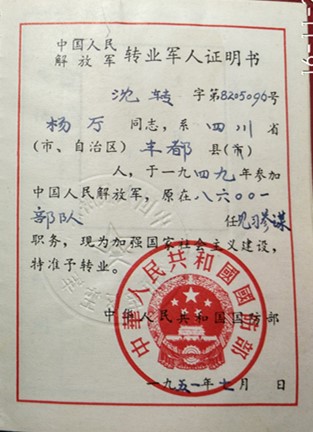 中国人民
解放军 转业军人证明书
沈转 字第8205096号
杨 同志，系 四川 省
(市、自治区) 丰都 县(市)
人，于一九四九年参加
中国人民解放军，原在八六00一
部队 任见习参谋
职务，现为加强国家社会主义建设，
特准予转业。
中华人民共和国国防部
中華人民共和國國防部
一九五一年七月 日